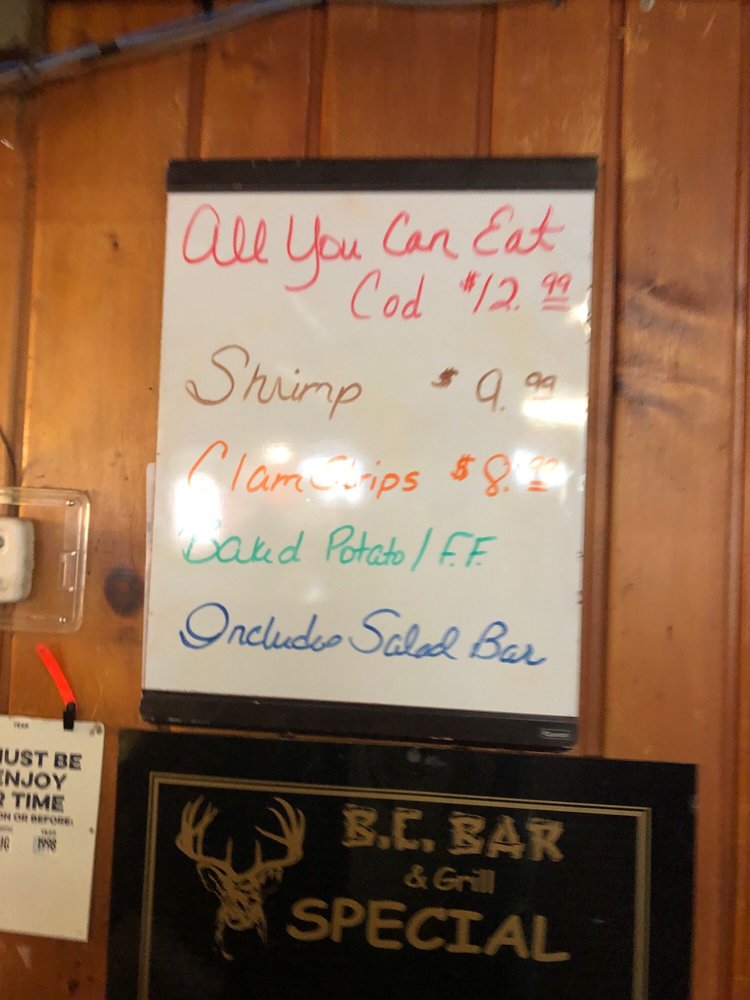 All You Can Eat
Cod $12.99
Shrimp $9.99
Clam Strips $8.99
Baked Potato / F.F.
Includes Salad Bar
YEAR
MUST BE
ENJOY
R TIME
ON OR BEFORE:
YEAR
UG 1998
B.C. BAR
& Grill
SPECIAL